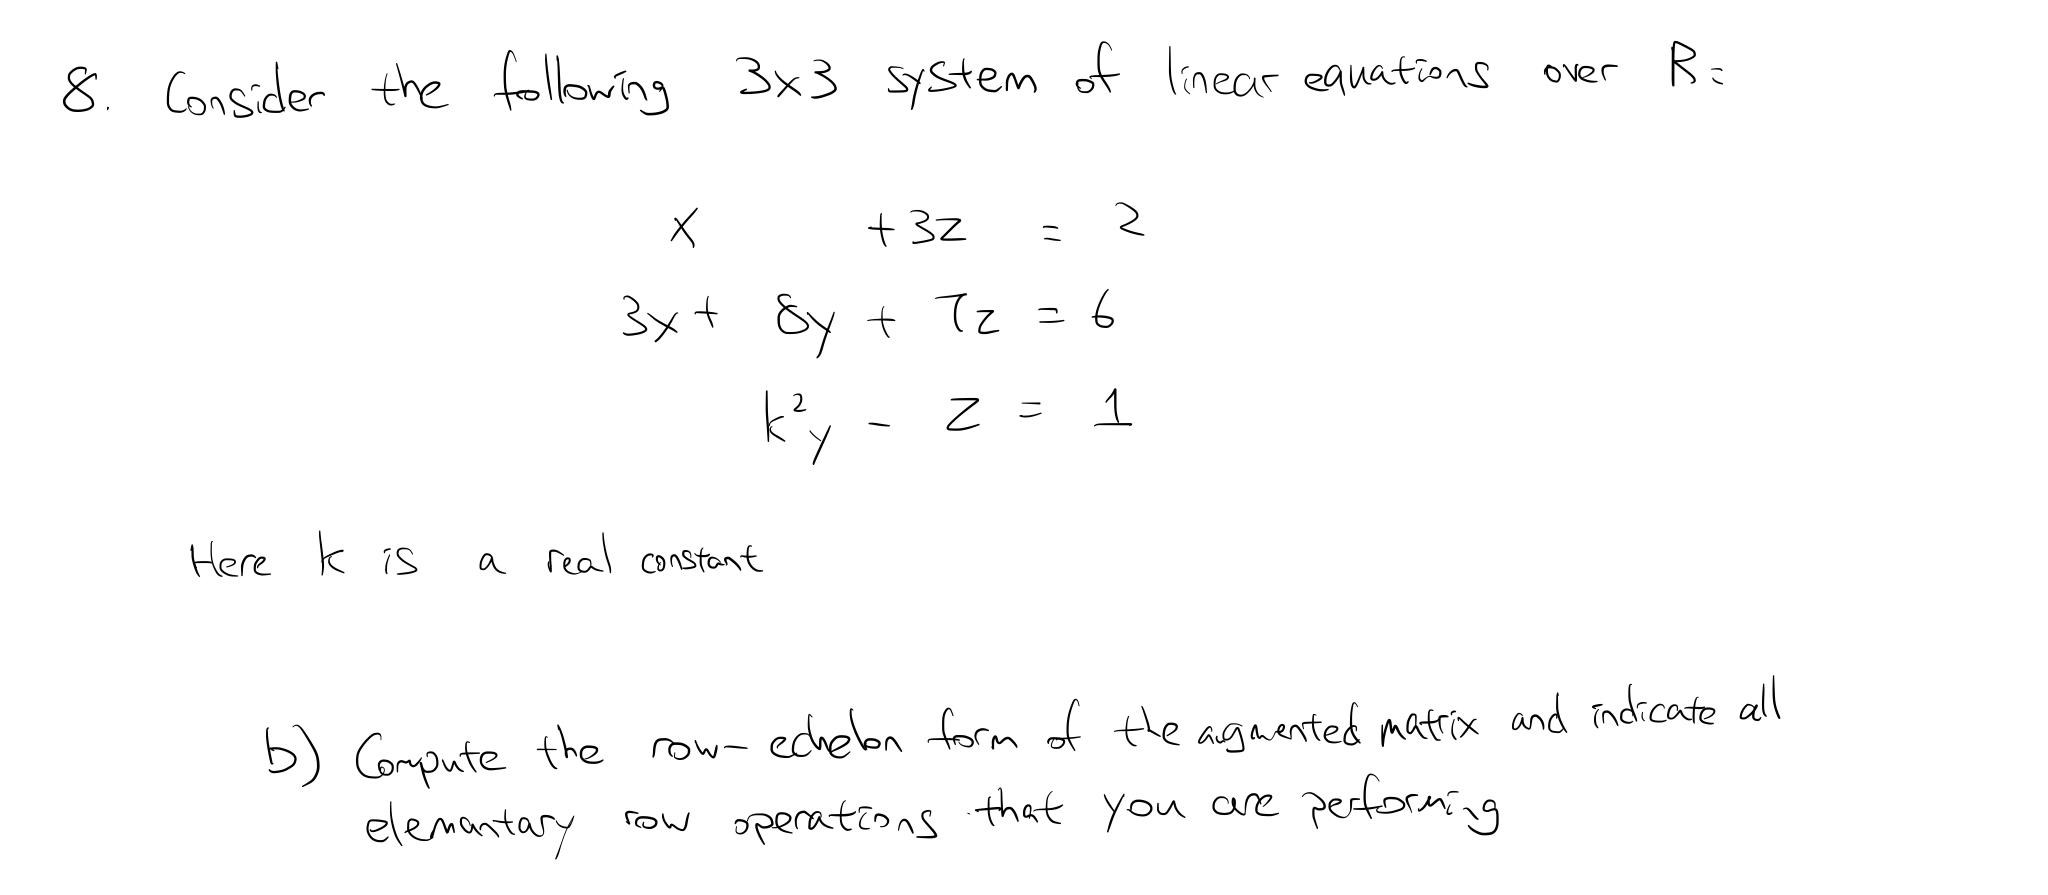 8. Consider the following 3x3 system of linear equations over R:
x + 3z = 2
3x + 8y + 7z = 6
k²y - z = 1
Here k is a real constant
b) Compute the row-echelon form of the augmented matrix and indicate all
elemantary row operations that you are performing